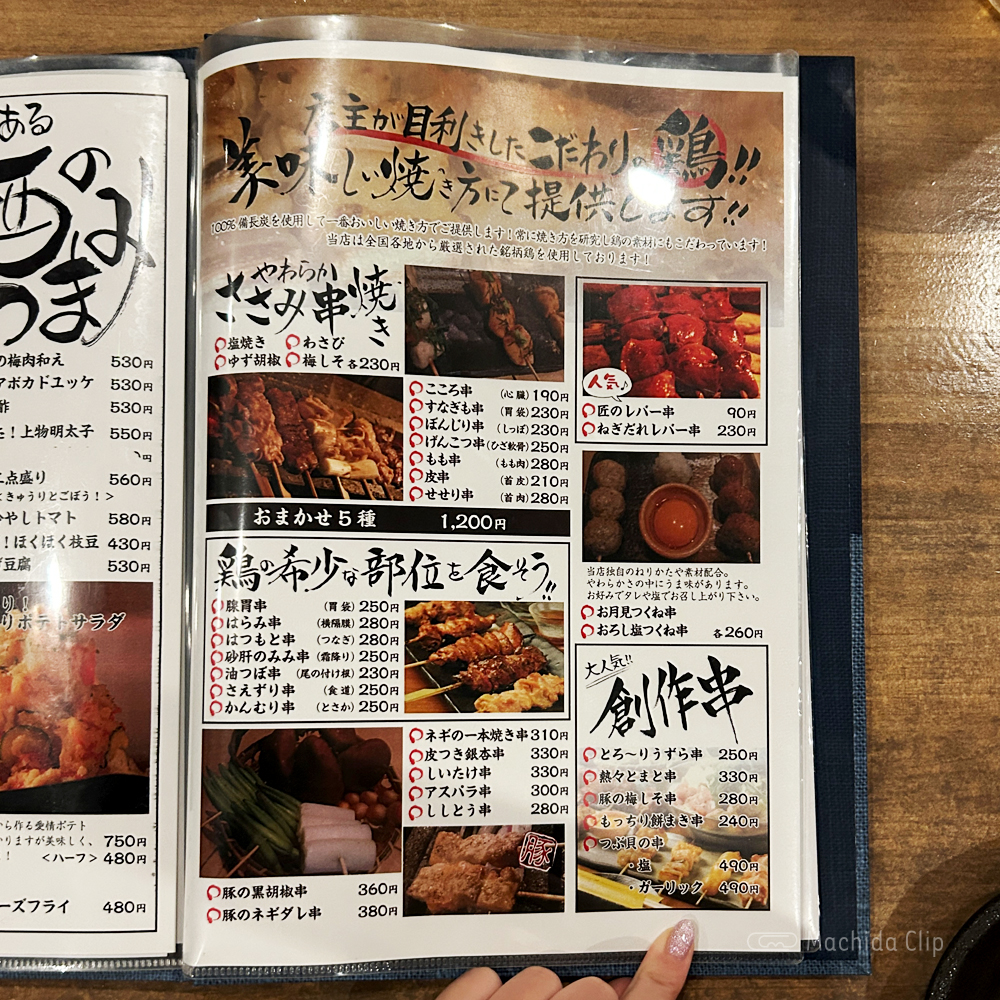 ある
酒の
つまみ
の梅肉和え 530円
アボカドユッケ 530円
酢 530円
！上物明太子 550円
二点盛り 560円
きゅうりとごぼう！＞
やしトマト 580円
！ほくほく枝豆 430円
豆腐 530円
り！
りポテトサラダ
から作る愛情ポテト
かりますが美味しく、 750円
！ ＜ハーフ＞ 480円
ーズフライ 480円
店主が目利きしたこだわりの鶏!!
美味しい焼き方にて提供します!!
100％備長炭を使用して一番おいしい焼き方でご提供します！常に焼き方を研究し鶏の素材にもこだわっています！
当店は全国各地から厳選された銘柄鶏を使用しております！
やわらか
ささみ串焼き
塩焼き わさび
ゆず胡椒 梅しそ 各230円
こころ串 （心臓） 190円
すなぎも串 （胃袋） 230円
ぼんじり串 （しっぽ） 230円
げんこつ串 （ひざ軟骨） 250円
もも串 （もも肉） 280円
皮串 （首皮） 210円
せせり串 （首肉） 280円
おまかせ5種 1,200円
人気♪
匠のレバー串 90円
ねぎだれレバー串 230円
当店独自のねりかたや素材配合。
やわらかさの中にうま味があります。
お好みでタレや塩でお召し上がり下さい。
お月見つくね串
おろし塩つくね串 各260円
鶏の希少な部位を食そう!!
腺胃串 （胃袋） 250円
はらみ串 （横隔膜） 280円
はつもと串 （つなぎ） 280円
砂肝のみみ串 （霜降り） 250円
油つぼ串 （尾の付け根） 230円
さえずり串 （食道） 250円
かんむり串 （とさか） 250円
ネギの一本焼き串 310円
皮つき銀杏串 330円
しいたけ串 330円
アスパラ串 300円
ししとう串 280円
豚
豚の黒胡椒串 360円
豚のネギダレ串 380円
大人気!!
創作串
とろ～りうずら串 250円
熱々とまと串 330円
豚の梅しそ串 280円
もっちり餅まき串 240円
つぶ貝の串
・塩 490円
・ガーリック 490円
Machida Clip